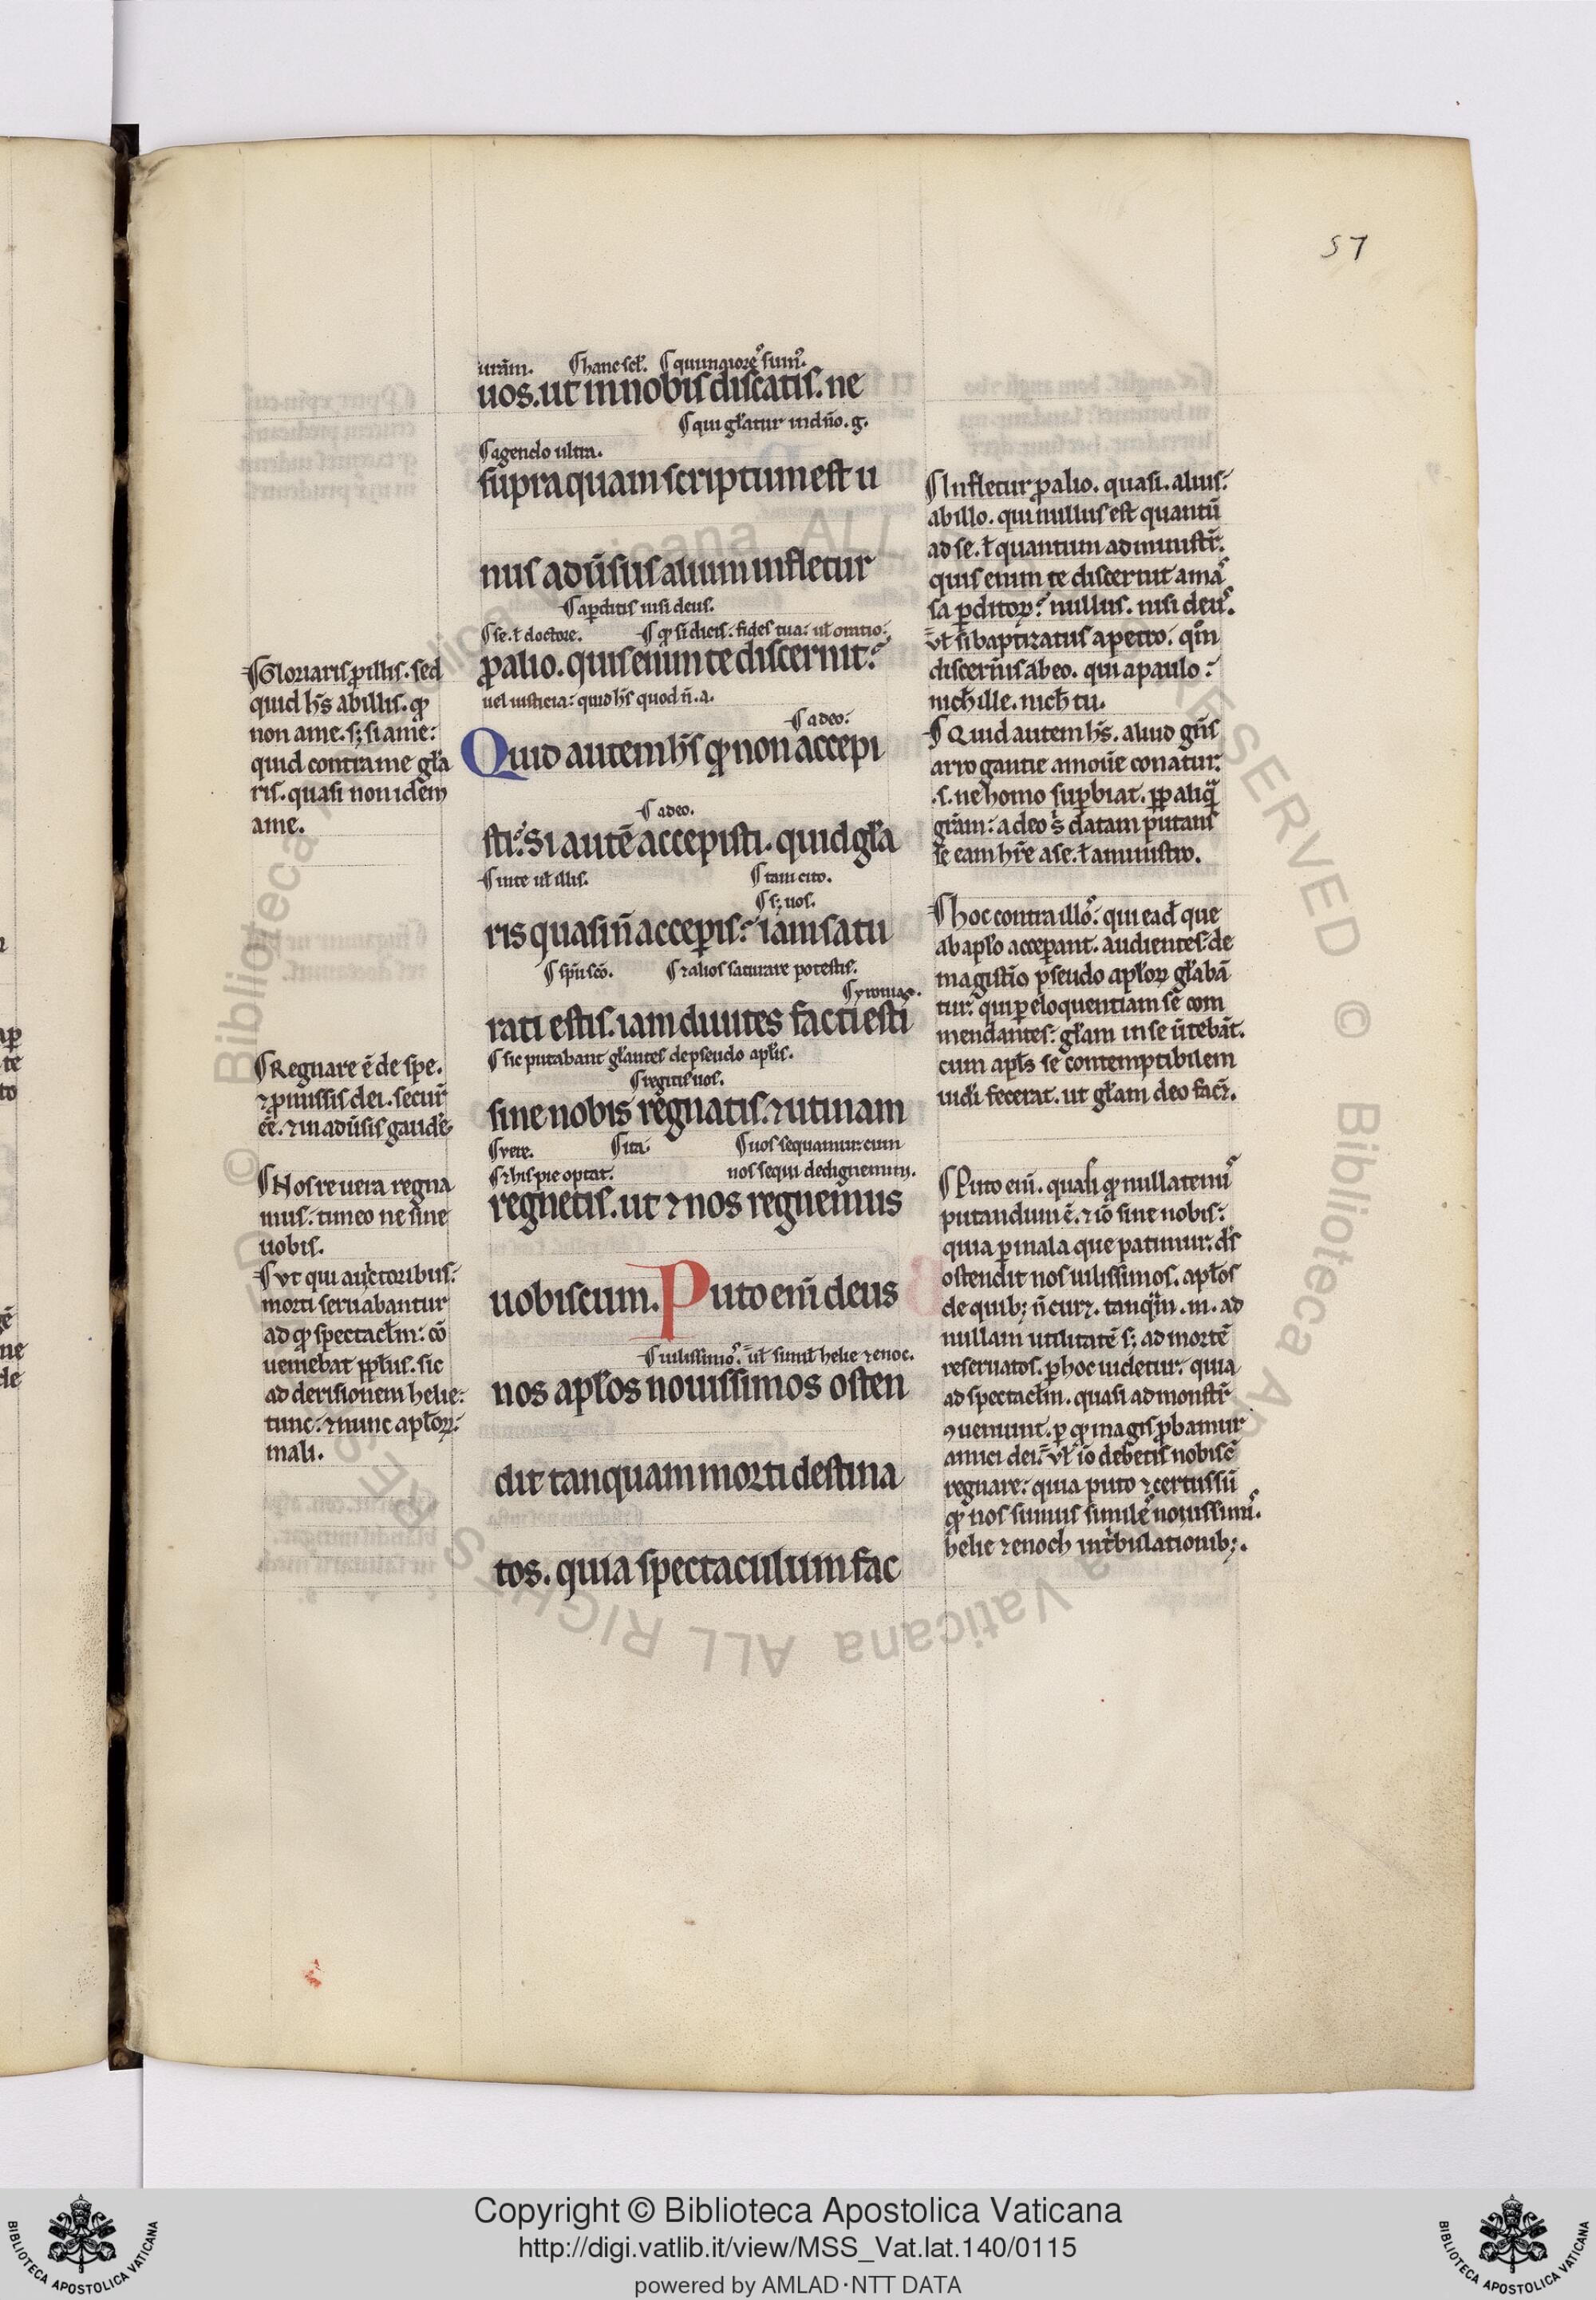 57
ur̄am. ¶ hanc scił. ¶ qui maiores sum᷒.
uos. ut in nobis discatis. ne
¶ qui gl̄atur in dn̄o. g.
¶ agendo ultra.
supra quam scriptum est u
nus adūsus alium infletur
¶ a perditis nisi deus.
¶ se. ł doctore. ¶ qđ si dicis: fides tua: uł oratio:
ꝓ alio. quis enim te discernit:
uel iusticia: quid hs̄ quod n̄. a.
¶ a deo:
Quid autem hs̄ qđ non accepi
¶ a deo.
sti: Si autē accepisti. quid gl̄a
¶ in te uł illis. ¶ tam cito.
¶ s; uos.
ris quasi n̄ acceperis: iam satu
¶ sp̄u sc̄o. ¶ ⁊ alios saturare potestis.
rati estis. iam diuites facti esti
¶ sic putabant gl̄antes de pseudo apl̄is.
¶ regitis uos.
sine nobis regnatis. ⁊ utinam
¶ vere. ¶ ita: ¶ uos sequamur: cum
¶ ⁊ his pie optat. nos sequi dedignemini.
regnetis. ut ⁊ nos regnemus
uobiscum. Puto eni̅ deus
¶ uilissimos. uł simił helie ⁊ enoc.
nos apl̄os nouissimos osten
dit tanquam morti destina
tos. quia spectaculum fac
¶ Gloriaris ꝓ illis. sed
quid hs̄ ab illis. qđ
non a me. s; si a me:
quid contra me gl̄a
ris. quasi non idem
a me.
¶ Regnare ē de spe.
⁊ ꝓmissis dei. secur̄
ee̅. ⁊ in adūsis gaude̅
¶ Nos re uera regna
mus: timeo ne sine
uobis.
¶ vt qui auctoribus:
morti seruabantur
ad qđ spectacl̄m: cō
ueniebat ppl̄us. sic
ad derisionem helie:
tunc: ⁊ nunc apl̄oꝝ:
mali.
¶ Infletur ꝓ alio. quasi. alius:
ab illo. qui nullus est quantū
ad se. ł quantum ad ministr̄.
quis enim te discernit a mas
sa ꝑditoꝝ: nullus. nisi deus.
vł si baptizatus a petro. qm̄
discern̄is ab eo. qui a paulo:
nich̄ ille. nich̄ tu.
¶ Quid autem hs̄. aliud gn̄s
arrogantie amoūe conatur:
.s. ne homo suꝑbiat. ꝓpꝑ aliqͣ
gr̄am: a deo s; datam putans
se eam hr̄e a se. ł a ministro.
¶ hoc contra illos: qui eađ que
ab apl̄o acceꝑant. audientes: de
magistr̄o pseudo apl̄oꝝ gl̄abā
tur: qui ꝑ eloquentiam se com
mendantes: gl̄am in se ūtebāt.
cum apl̄s se contemptibilem
iudi̅ fecerat. ut gl̄am deo facr̄.
¶ Puto eni̅. quasi qđ nullatenus
putandum ē. ⁊ iō sine nobis:
quia ꝑ mala que patimur: ds̄
ostendit nos uilissimos. apl̄os
de quib; n̄ cur⁊. tanqͣm .m. ad
nullam utilitatē s; ad mortē
reseruatos. ꝑ hoc uidetur: quia
ad spectacl̄m. quasi ad monstr̄
ꝯueniunt. ꝑ qđ magis ꝓbamur
amici dei: vł iō debetis nobisc̄
regnare: quia puto ⁊ certus sū
qđ nos sumus similes nouissimis.
helie ⁊ enoch in tribulationib;.
Copyright © Biblioteca Apostolica Vaticana
http://digi.vatlib.it/view/MSS_Vat.lat.140/0115
powered by AMLAD·NTT DATA
BIBLIOTECA APOSTOLICA VATICANA
BIBLIOTECA APOSTOLICA VATICANA